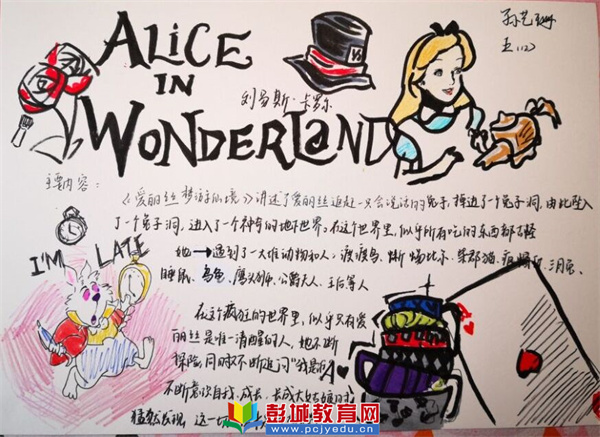 ALiCE
IN
WONDERLAND
刘易斯·卡罗尔
五(12)
主要内容:
《爱丽丝梦游仙境》讲述了爱丽丝追赶一只会说话的兔子,掉进了个兔子洞,由此坠入
了一个兔子洞,进入了一个神奇的地下世界。在这个世界里,似乎所有吃的东西都古怪
她→遇到了一大堆动物和人:渡渡鸟、蜥蜴比尔、柴郡猫、疯帽匠、三月兔、
睡鼠、鹰头狮、公爵夫人、王后等人
I'M LATE
在这个疯狂的世界里,似乎只有爱
丽丝是唯一清醒的人,她不断
探险,同时不断追问"我是谁
不断意识自我,成长,长成大姑娘时
猛然发现,这一切
A
1/2
彭城教育网
www.pcjyedu.cn